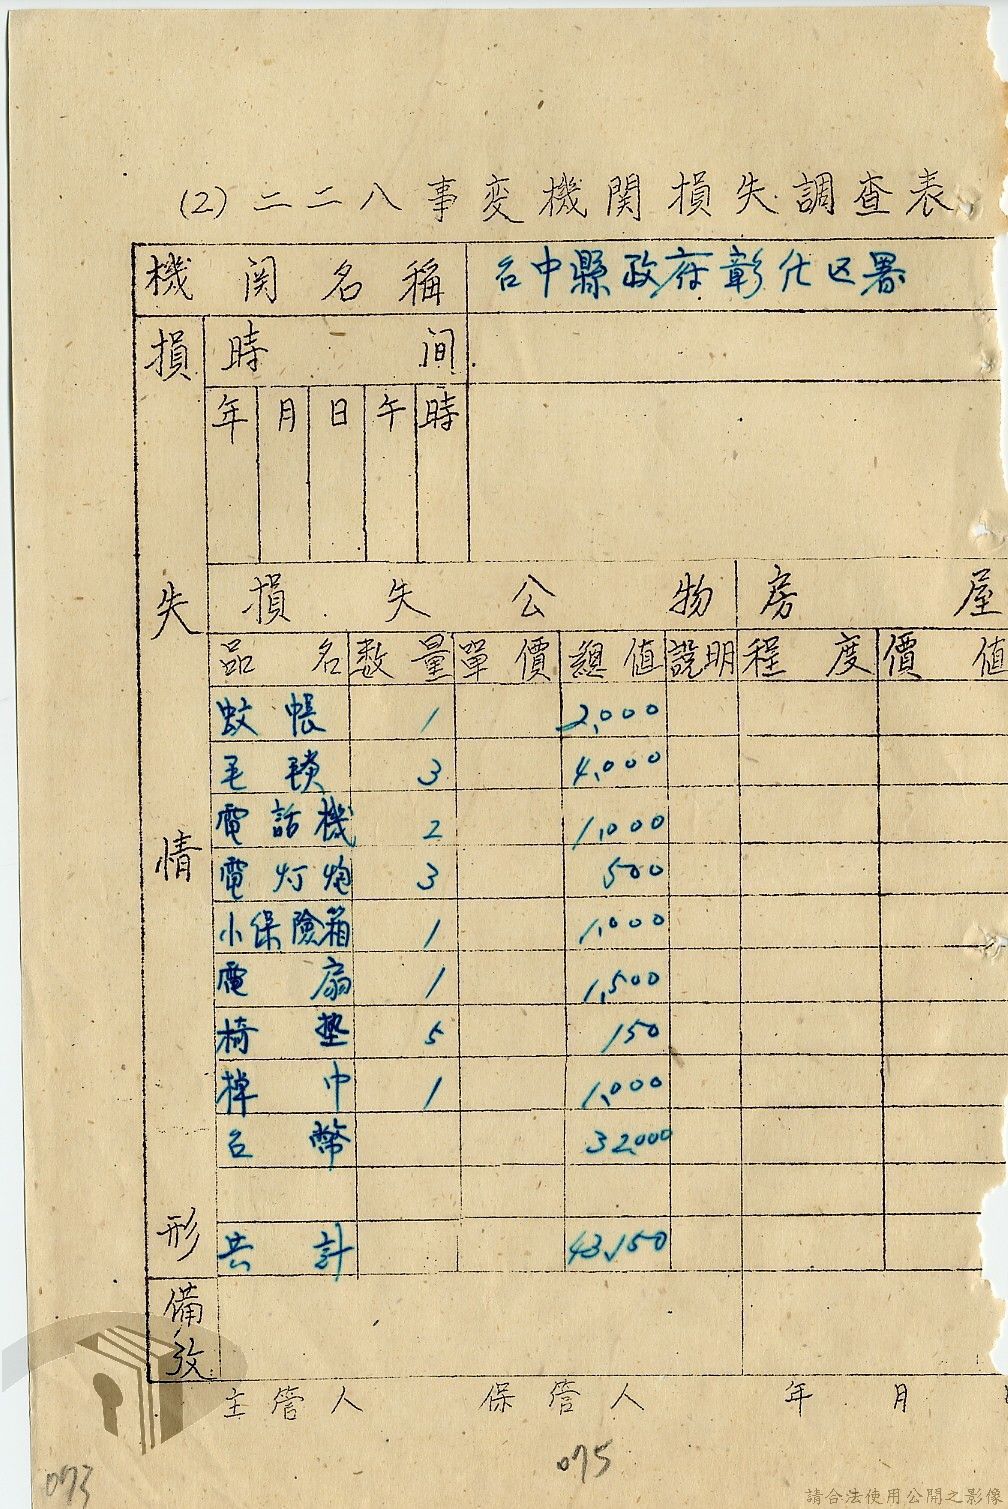 (2)二二八事変機関損失調査表
機関名稱 台中縣政府彰化区署
損 時间
年 月 日 午 時
失 損失公物 房屋
品名 数量 單價 總值 說明 程度 價值
蚊帳 1 2,000
毛毯 3 4,000
電話機 2 1,000
情
電灯炮 3 500
小保險箱 1 1,000
電扇 1 1,500
椅垫 5 150
棹巾 1 1,000
台幣 32,000
形 共計 43,150
備攷
主管人 保管人 年 月
075
073
請合法使用公開之影像